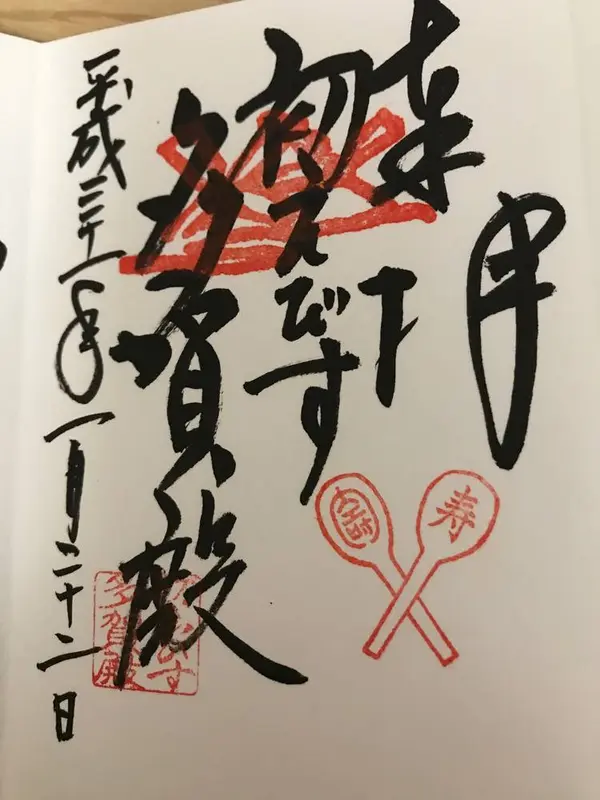 奉
初えびす
多賀殿
平成三十一年一月二十二日
寿
えびす
多賀殿